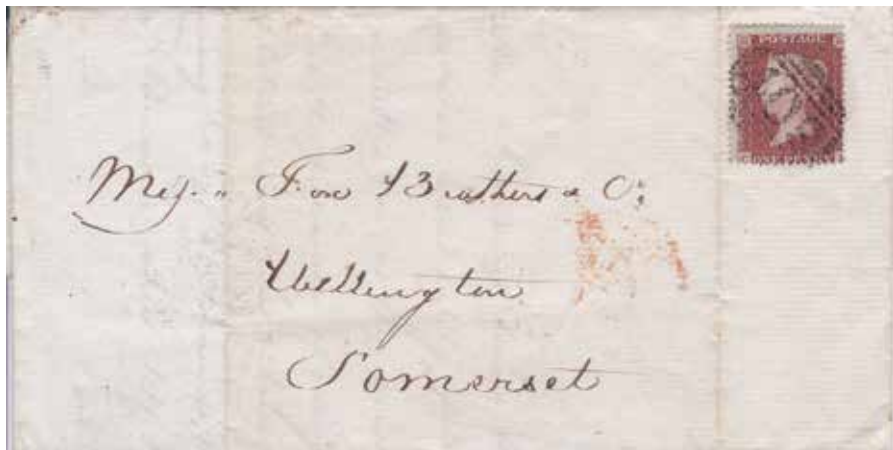 POSTAGE
ONE PENNY
Messrs Fox Brothers & Co;
Wellington
Somerset